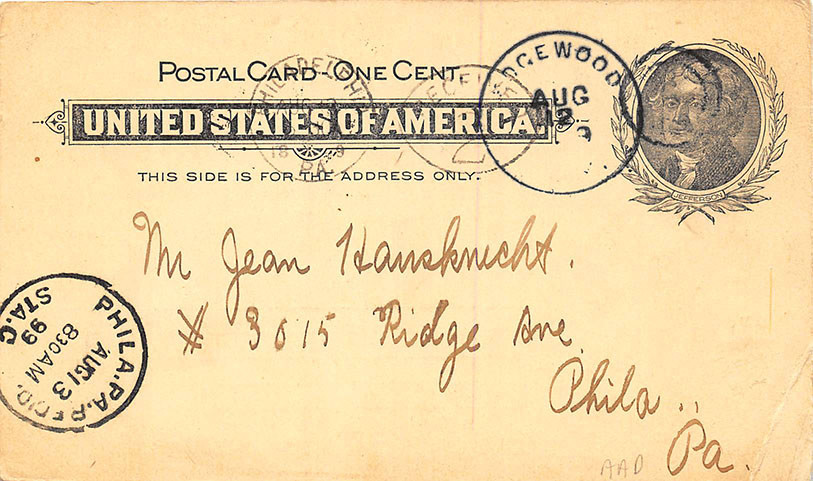 POSTAL CARD - ONE CENT.
UNITED STATES OF AMERICA.
THIS SIDE IS FOR THE ADDRESS ONLY.
JEFFERSON
PHILADELPHIA
PA.
RECEIVED
2
DGEWOOD
AUG
12
9
Mr Jean Hausknecht.
# 3015 Ridge Ave
Phila..
Pa.
PHILA. PA. REC'D.
AUG 13
830 AM
99
STA. C
AAD